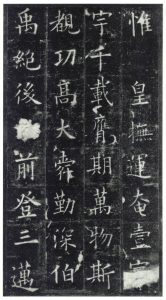 惟皇撫運奄壹寰
宇千載膺期萬物斯
覩功髙大舜勤深伯
禹絕後前登三邁